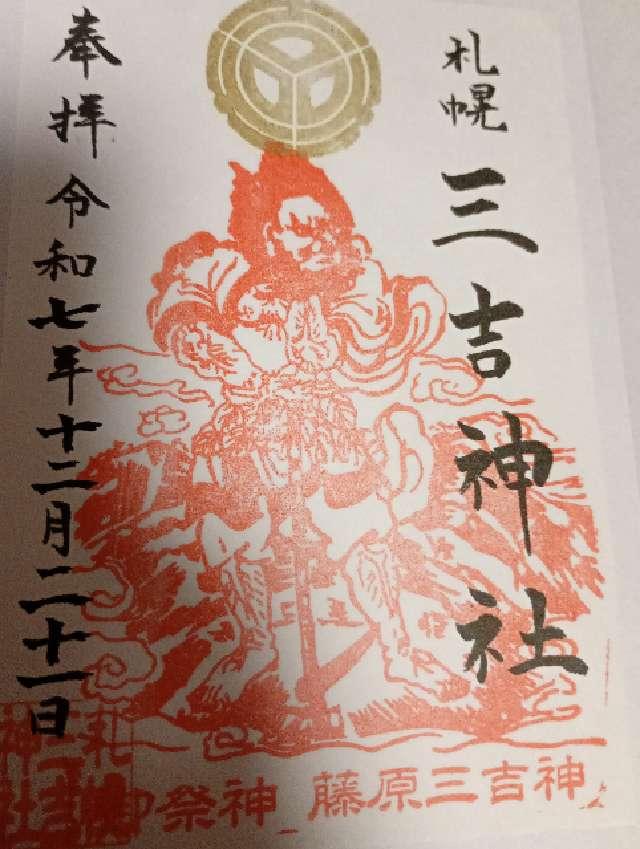 札幌 三吉神社
奉拝 令和七年十二月二十一日
御祭神 藤原三吉神